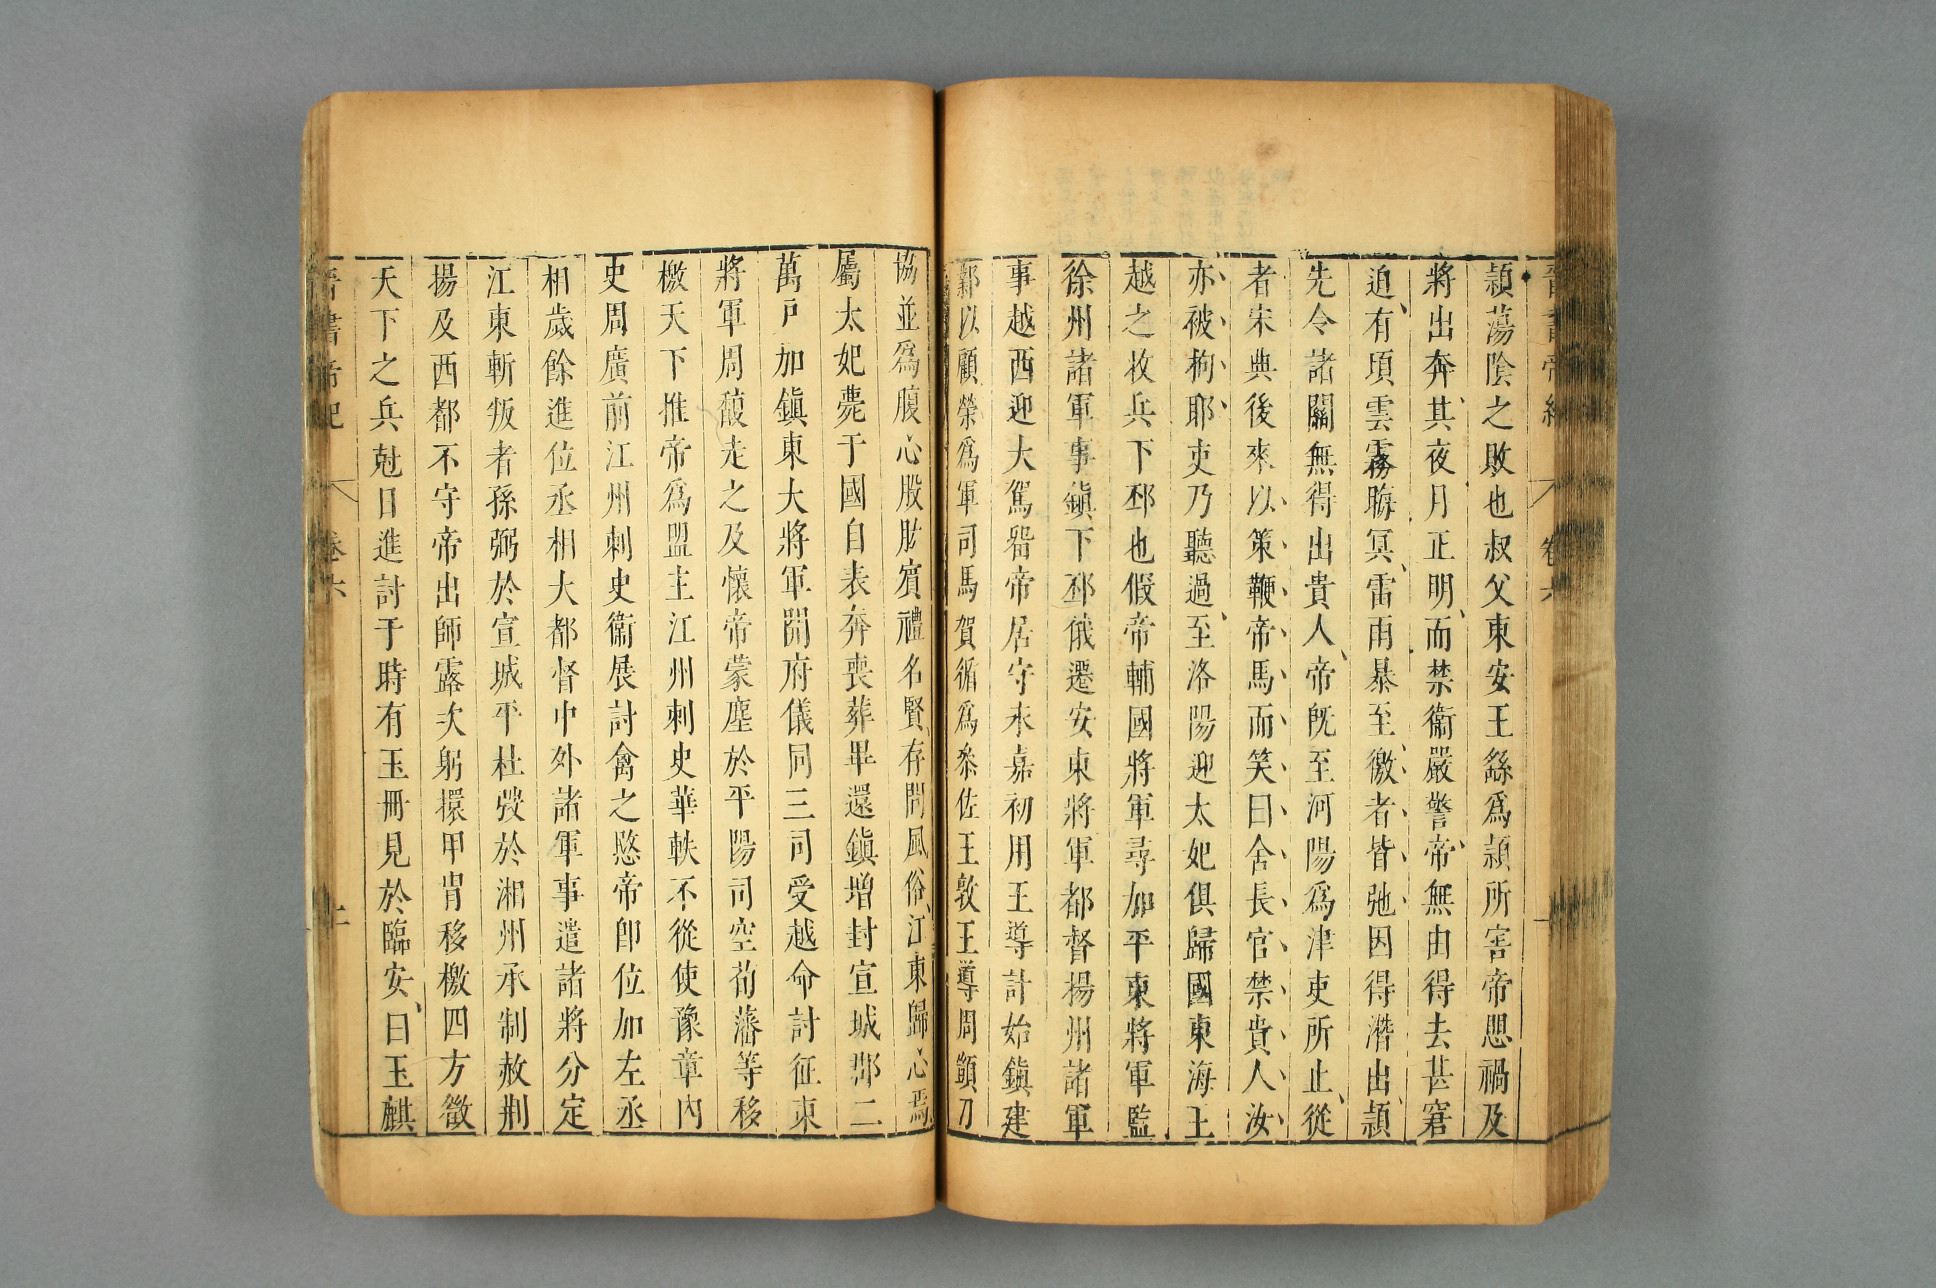 晉書帝紀 卷六
潁蕩陰之敗也叔父東安王繇爲潁所害帝思禍及
將出奔其夜月正明而禁衞嚴警帝無由得去甚窘
迫有頃雲霧晦冥雷雨暴至徼者皆弛因得潛出潁
先令諸關無得出貴人帝旣至河陽爲津吏所止從
者宋典後來以策鞭帝馬而笑曰舍長官禁貴人汝
亦被拘耶吏乃聽過至洛陽迎太妃俱歸國東海王
越之收兵下邳也假帝輔國將軍尋加平東將軍監
徐州諸軍事鎮下邳俄遷安東將軍都督揚州諸軍
事越西迎大駕畱帝居守永嘉初用王導計始鎮建
鄴以顧榮爲軍司馬賀循爲叅佐王敦王導周顗刀
協並爲腹心股肱賓禮名賢存問風俗江東歸心焉
屬太妃薨于國自表奔喪葬畢還鎮增封宣城郡二
萬戸加鎮東大將軍開府儀同三司受越命討征東
將軍周馥走之及懷帝蒙塵於平陽司空荀藩等移
檄天下推帝爲盟主江州刺史華軼不從使豫章內
史周廣前江州刺史衞展討禽之愍帝卽位加左丞
相歲餘進位丞相大都督中外諸軍事遣諸將分定
江東斬叛者孫弼於宣城平杜弢於湘州承制赦荆
揚及西都不守帝出師露次躬擐甲冑移檄四方徵
天下之兵尅日進討于時有玉冊見於臨安白玉麒
晉書帝紀 卷六 上